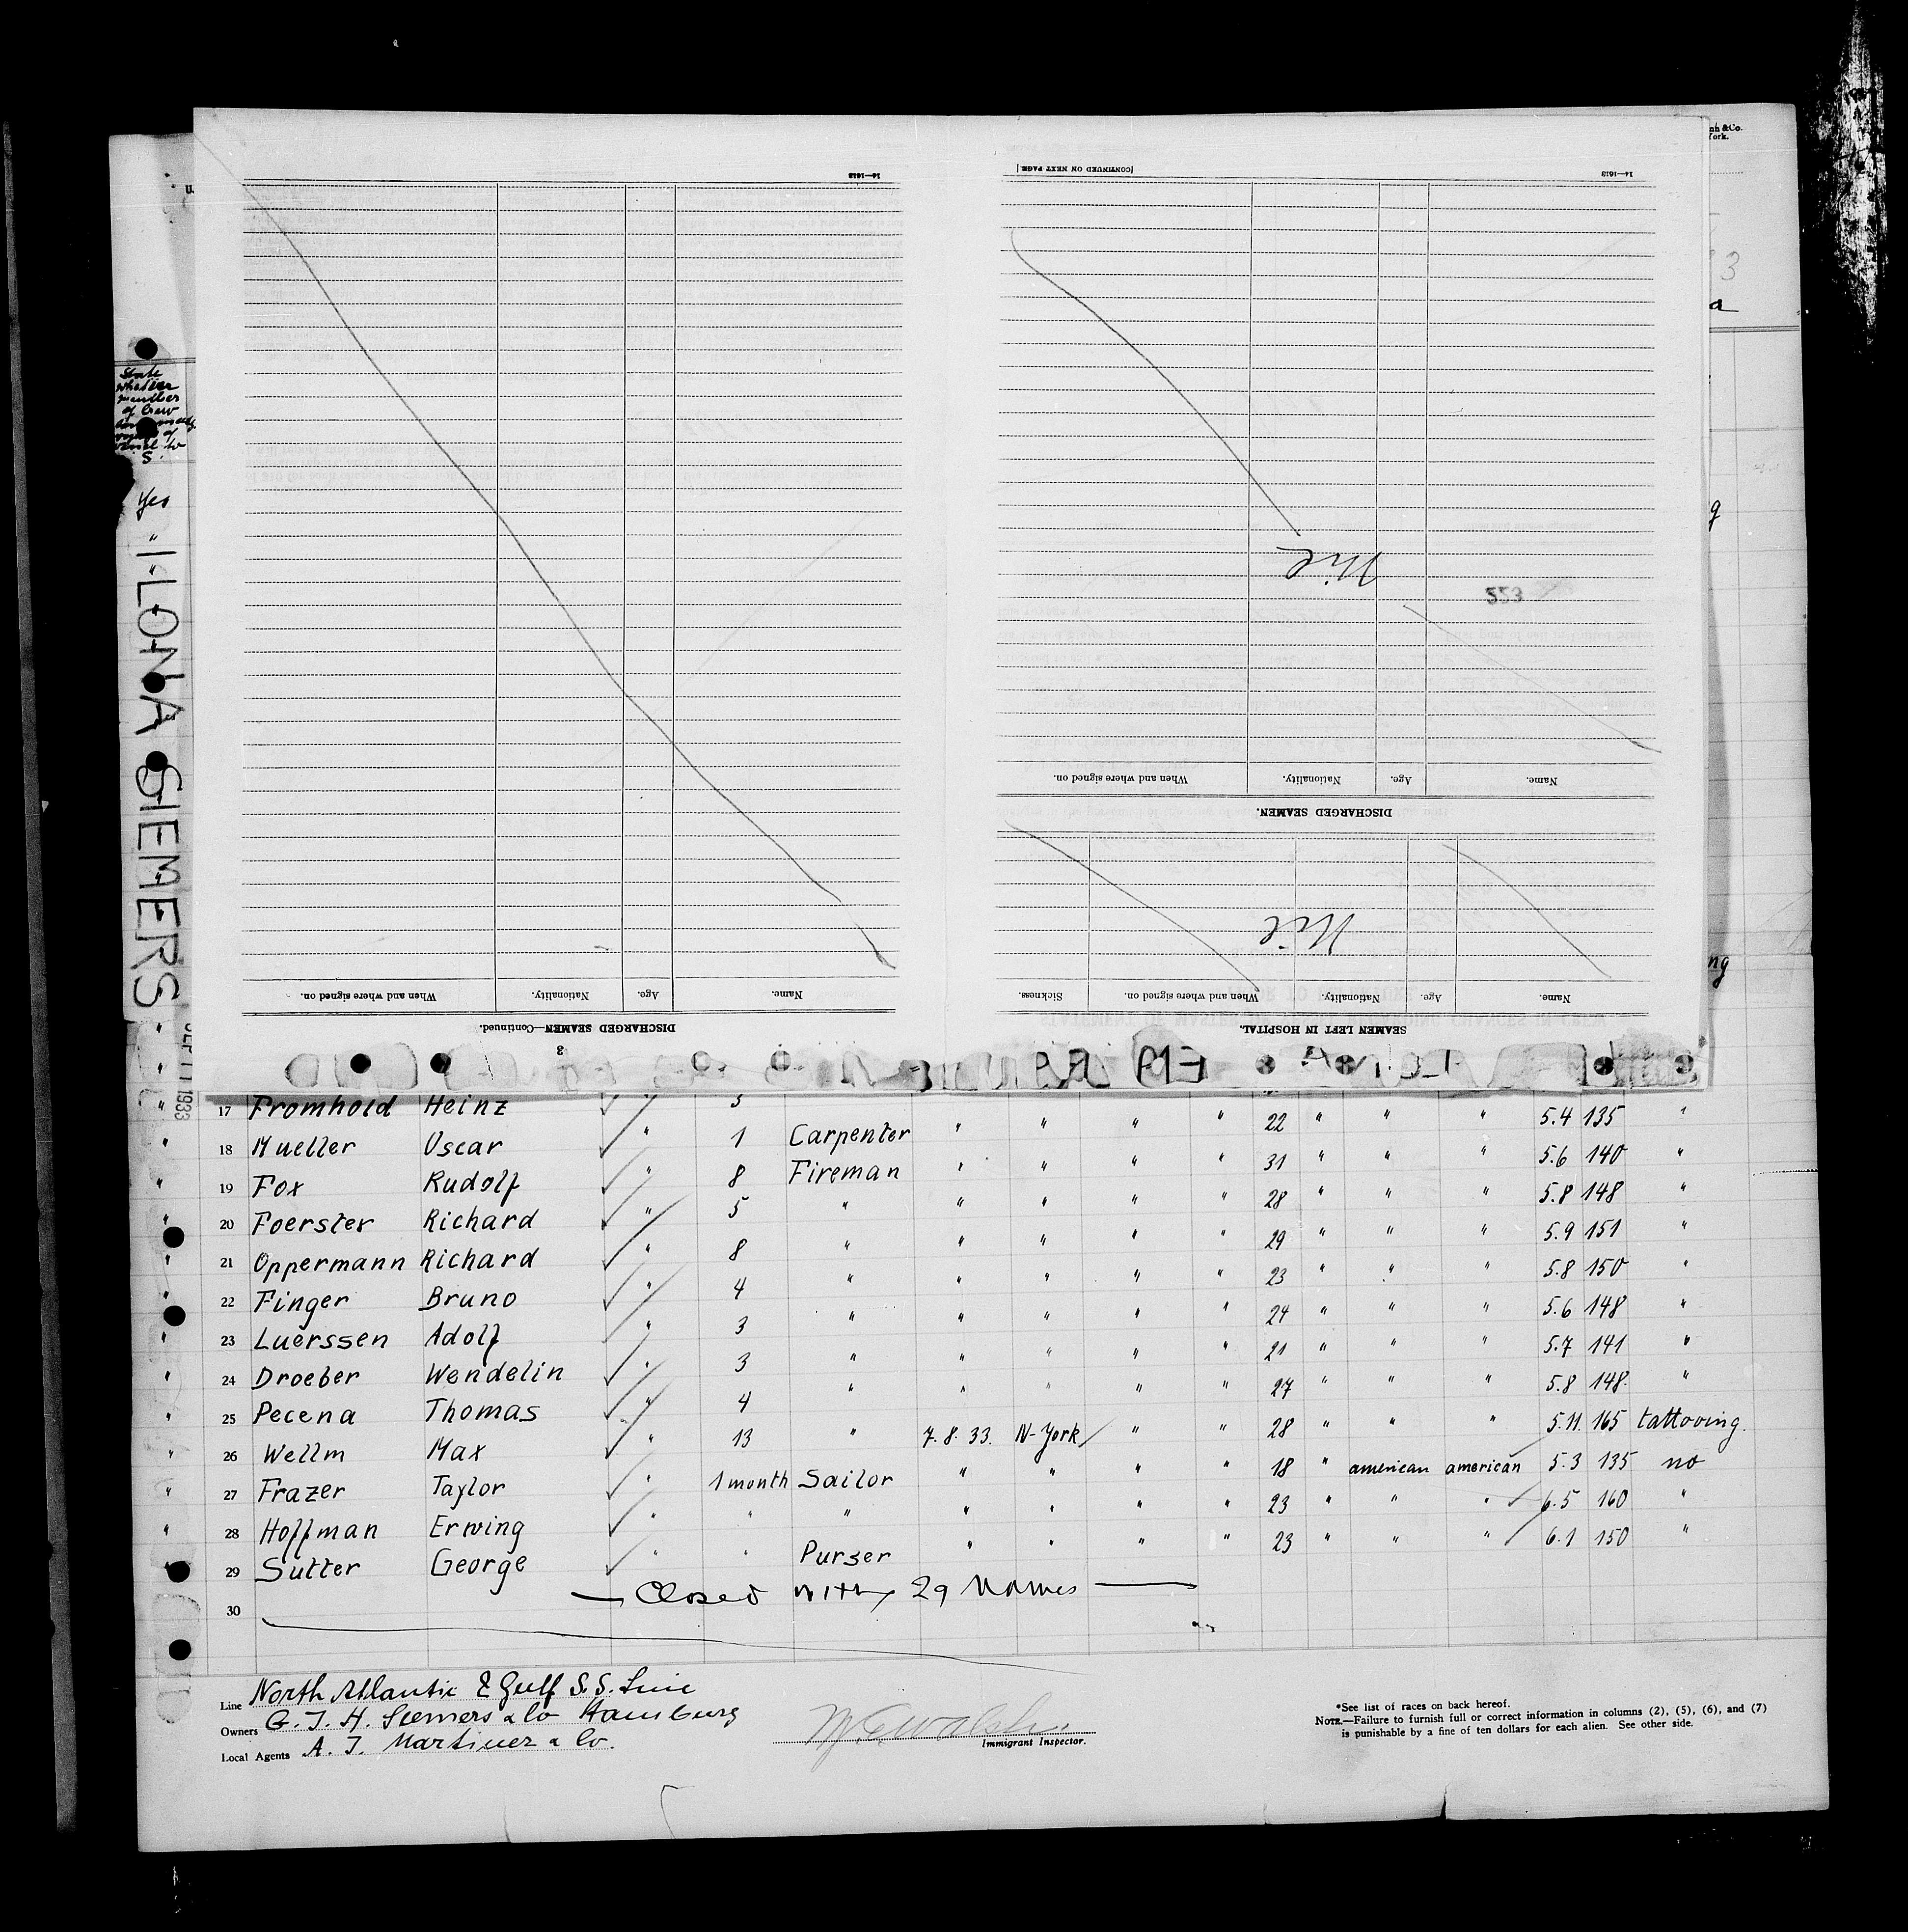 14—1613
[CONTINUED ON NEXT PAGE]
14—1613
nh & Co.
York.
State
whether
member
of Crew
S.
Yes
ILONA SIEMERS
Nil
223
When and where signed on. Nationality. Age. Name.
DISCHARGED SEAMEN.
Nil
Sickness. When and where signed on. Nationality. Age. Name.
SEAMEN LEFT IN HOSPITAL.
When and where signed on. Nationality. Age. Name.
DISCHARGED SEAMEN—Continued.
3
SEP 11 1933
17 Fromhold Heinz ✓ " 5
18 Mueller Oscar ✓ " 1 Carpenter " " " " 22 " " " 5.4 135 "
19 Fox Rudolf ✓ " 8 Fireman " " " " 31 " " " 5.6 140 "
20 Foerster Richard ✓ " 5 " " " " " 28 " " " 5.8 148 "
21 Oppermann Richard ✓ " 8 " " " " " 29 " " " 5.9 151 "
22 Finger Bruno ✓ " 4 " " " " " 23 " " " 5.8 150 "
23 Luerssen Adolf ✓ " 3 " " " " " 24 " " " 5.6 148 "
24 Droeber Wendelin ✓ " 3 " " " " " 21 " " " 5.7 141 "
25 Pecena Thomas ✓ " 4 " " " " " 27 " " " 5.8 148 "
26 Wellm Max ✓ " 13 " 7.8.33. N-York " " 28 " " " 5.11 165 tattooing.
27 Frazer Taylor ✓ " 1 month Sailor " " " " 18 " american american 5.3 135 no
28 Hoffman Erwing ✓ " " " " " " " 23 " " " 6.5 160 "
29 Sutter George ✓ " " Purser " " " " 23 " " " 6.1 150 "
— Closed with 29 Names —
30
Line North Atlantic & Gulf S.S. Line
Owners G. J. H. Siemers & Co Hamburg
Local Agents A. J. Martinez & Co.
Immigrant Inspector.
*See list of races on back hereof.
NOTE.—Failure to furnish full or correct information in columns (2), (5), (6), and (7)
is punishable by a fine of ten dollars for each alien. See other side.